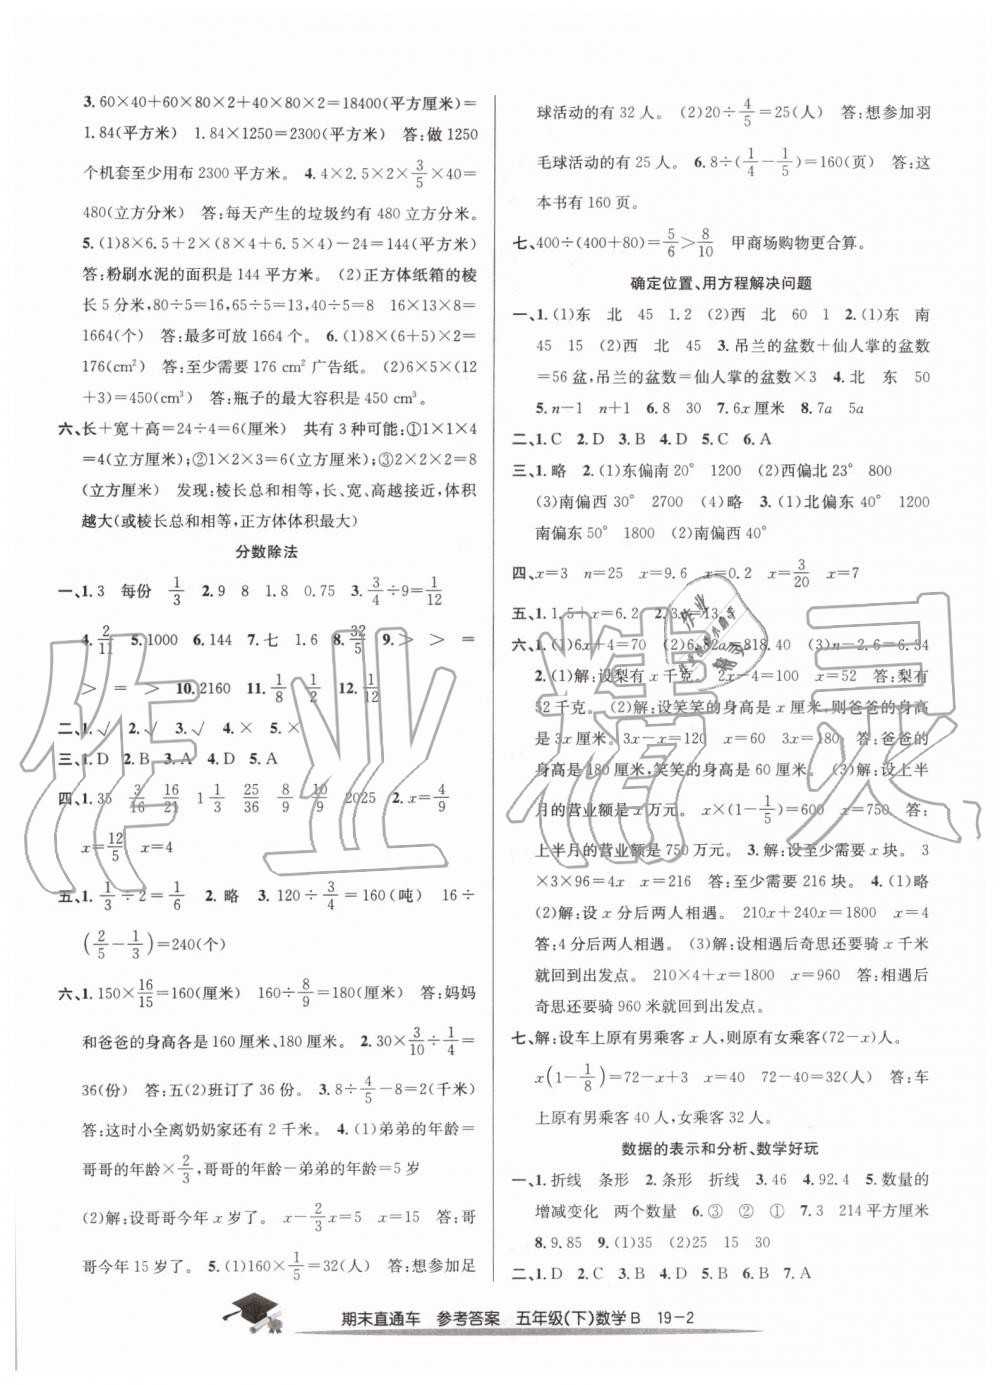 3. 60×40+60×80×2+40×80×2=18400(平方厘米)=
1.84(平方米)　1.84×1250=2300(平方米)　答:做 1250
个机套至少用布 2300 平方米。 4. 4×2.5×2×3/5×40=
480(立方分米)　答:每天产生的垃圾约有 480 立方分米。
5. (1)8×6.5+2×(8×4+6.5×4)-24=144(平方米)
答:粉刷水泥的面积是 144 平方米。 (2)正方体纸箱的棱
长 5 分米,80÷5=16,65÷5=13,40÷5=8　16×13×8=
1664(个)　答:最多可放 1664 个。 6. (1)8×(6+5)×2=
176(cm²)　答:至少需要 176 cm² 广告纸。 (2)6×5×(12
+3)=450(cm³)　答:瓶子的最大容积是 450 cm³。
六、长+宽+高=24÷4=6(厘米)　共有 3 种可能:①1×1×4
=4(立方厘米);②1×2×3=6(立方厘米);③2×2×2=8
(立方厘米)　发现:棱长总和相等,长、宽、高越接近,体积
越大(或棱长总和相等,正方体体积最大)
分数除法
一、1. 3　每份　1/3　2. 9　8　1.8　0.75　3. 3/4÷9=1/12
4. 2/11　5. 1000　6. 144　7. 七　1.6　8. 32/5　9. >　>　=
>　=　>　10. 2160　11. 1/8　1/2　12. 1/12
二、1. √　2. √　3. √　4. ×　5. ×
三、1. D　2. B　3. A　4. D　5. A
四、1. 35　3/16　16/21　1 1/3　25/36　8/9　10/9　2025　2. x=4/9
x=12/5　x=4
五、1. 1/3÷2=1/6　2. 略　3. 120÷3/4=160(吨)　16÷
(2/5-1/3)=240(个)
六、1. 150×16/15=160(厘米)　160÷8/9=180(厘米)　答:妈妈
和爸爸的身高各是 160 厘米、180 厘米。 2. 30×3/10÷1/4=
36(份)　答:五(2)班订了 36 份。 3. 8÷4/5-8=2(千米)
答:这时小全离奶奶家还有 2 千米。 4. (1)弟弟的年龄=
哥哥的年龄×2/3,哥哥的年龄-弟弟的年龄=5 岁
(2)解:设哥哥今年 x 岁了。 x-2/3x=5　x=15　答:哥
哥今年 15 岁了。 5. (1)160×1/5=32(人)　答:想参加足
球活动的有 32 人。 (2)20÷4/5=25(人)　答:想参加羽
毛球活动的有 25 人。 6. 8÷(1/4-1/5)=160(页)　答:这
本书有 160 页。
七、400÷(400+80)=5/6>8/10　甲商场购物更合算。
确定位置、用方程解决问题
一、1. (1)东　北　45　1.2　(2)西　北　60　1　2. (1)东　南
45　15　(2)西　北　45　3. 吊兰的盆数+仙人掌的盆数
=56 盆,吊兰的盆数=仙人掌的盆数×3　4. 北　东　50
5. n-1　n+1　6. 8　30　7. 6x 厘米　8. 7a　5a
二、1. C　2. D　3. D　4. B　5. C　6. A
三、1. 略　2. (1)东偏南 20°　1200　(2)西偏北 23°　800
(3)南偏西 30°　2700　(4)略　3. (1)北偏东 40°　1200
南偏东 50°　1800　(2)南偏西 40°
四、x=3　n=25　x=9.6　x=0.2　x=3/20　x=7
五、1. 1.5+x=6.2　2. 3x=13.5
六、1. (1)6x+4=70　(2)6.82a=818.40　(3)n-2.6=6.34
2. (1)解:设梨有 x 千克。 2x-4=100　x=52　答:梨有
52 千克。 (2)解:设笑笑的身高是 x 厘米,则爸爸的身高
是 3x 厘米。3x-x=120　x=60　3x=180　答:爸爸的
身高是 180 厘米,笑笑的身高是 60 厘米。 (3)解:设上半
月的营业额是 x 万元。 x×(1-1/5)=600　x=750　答:
上半月的营业额是 750 万元。 3. 解:设至少需要 x 块。 3
×3×96=4x　x=216　答:至少需要 216 块。 4. (1)略
(2)解:设 x 分后两人相遇。 210x+240x=1800　x=4
答:4 分后两人相遇。 (3)解:设相遇后奇思还要骑 x 千米
就回到出发点。 210×4+x=1800　x=960　答:相遇后
奇思还要骑 960 米就回到出发点。
七、解:设车上原有男乘客 x 人,则原有女乘客(72-x)人。
x(1-1/8)=72-x+3　x=40　72-40=32(人)　答:车
上原有男乘客 40 人,女乘客 32 人。
数据的表示和分析、数学好玩
一、1. 折线　条形　2. 条形　折线　3. 46　4. 92.4　5. 数量的
增减变化　两个数量　6. ③　②　①　7. 3　214 平方厘米
8. 9.85　9. (1)35　(2)25　15　30
二、1. D　2. C　3. C　4. D　5. B　6. B　7. A
期末直通车　参考答案　五年级(下)数学B　19-2
作业精灵